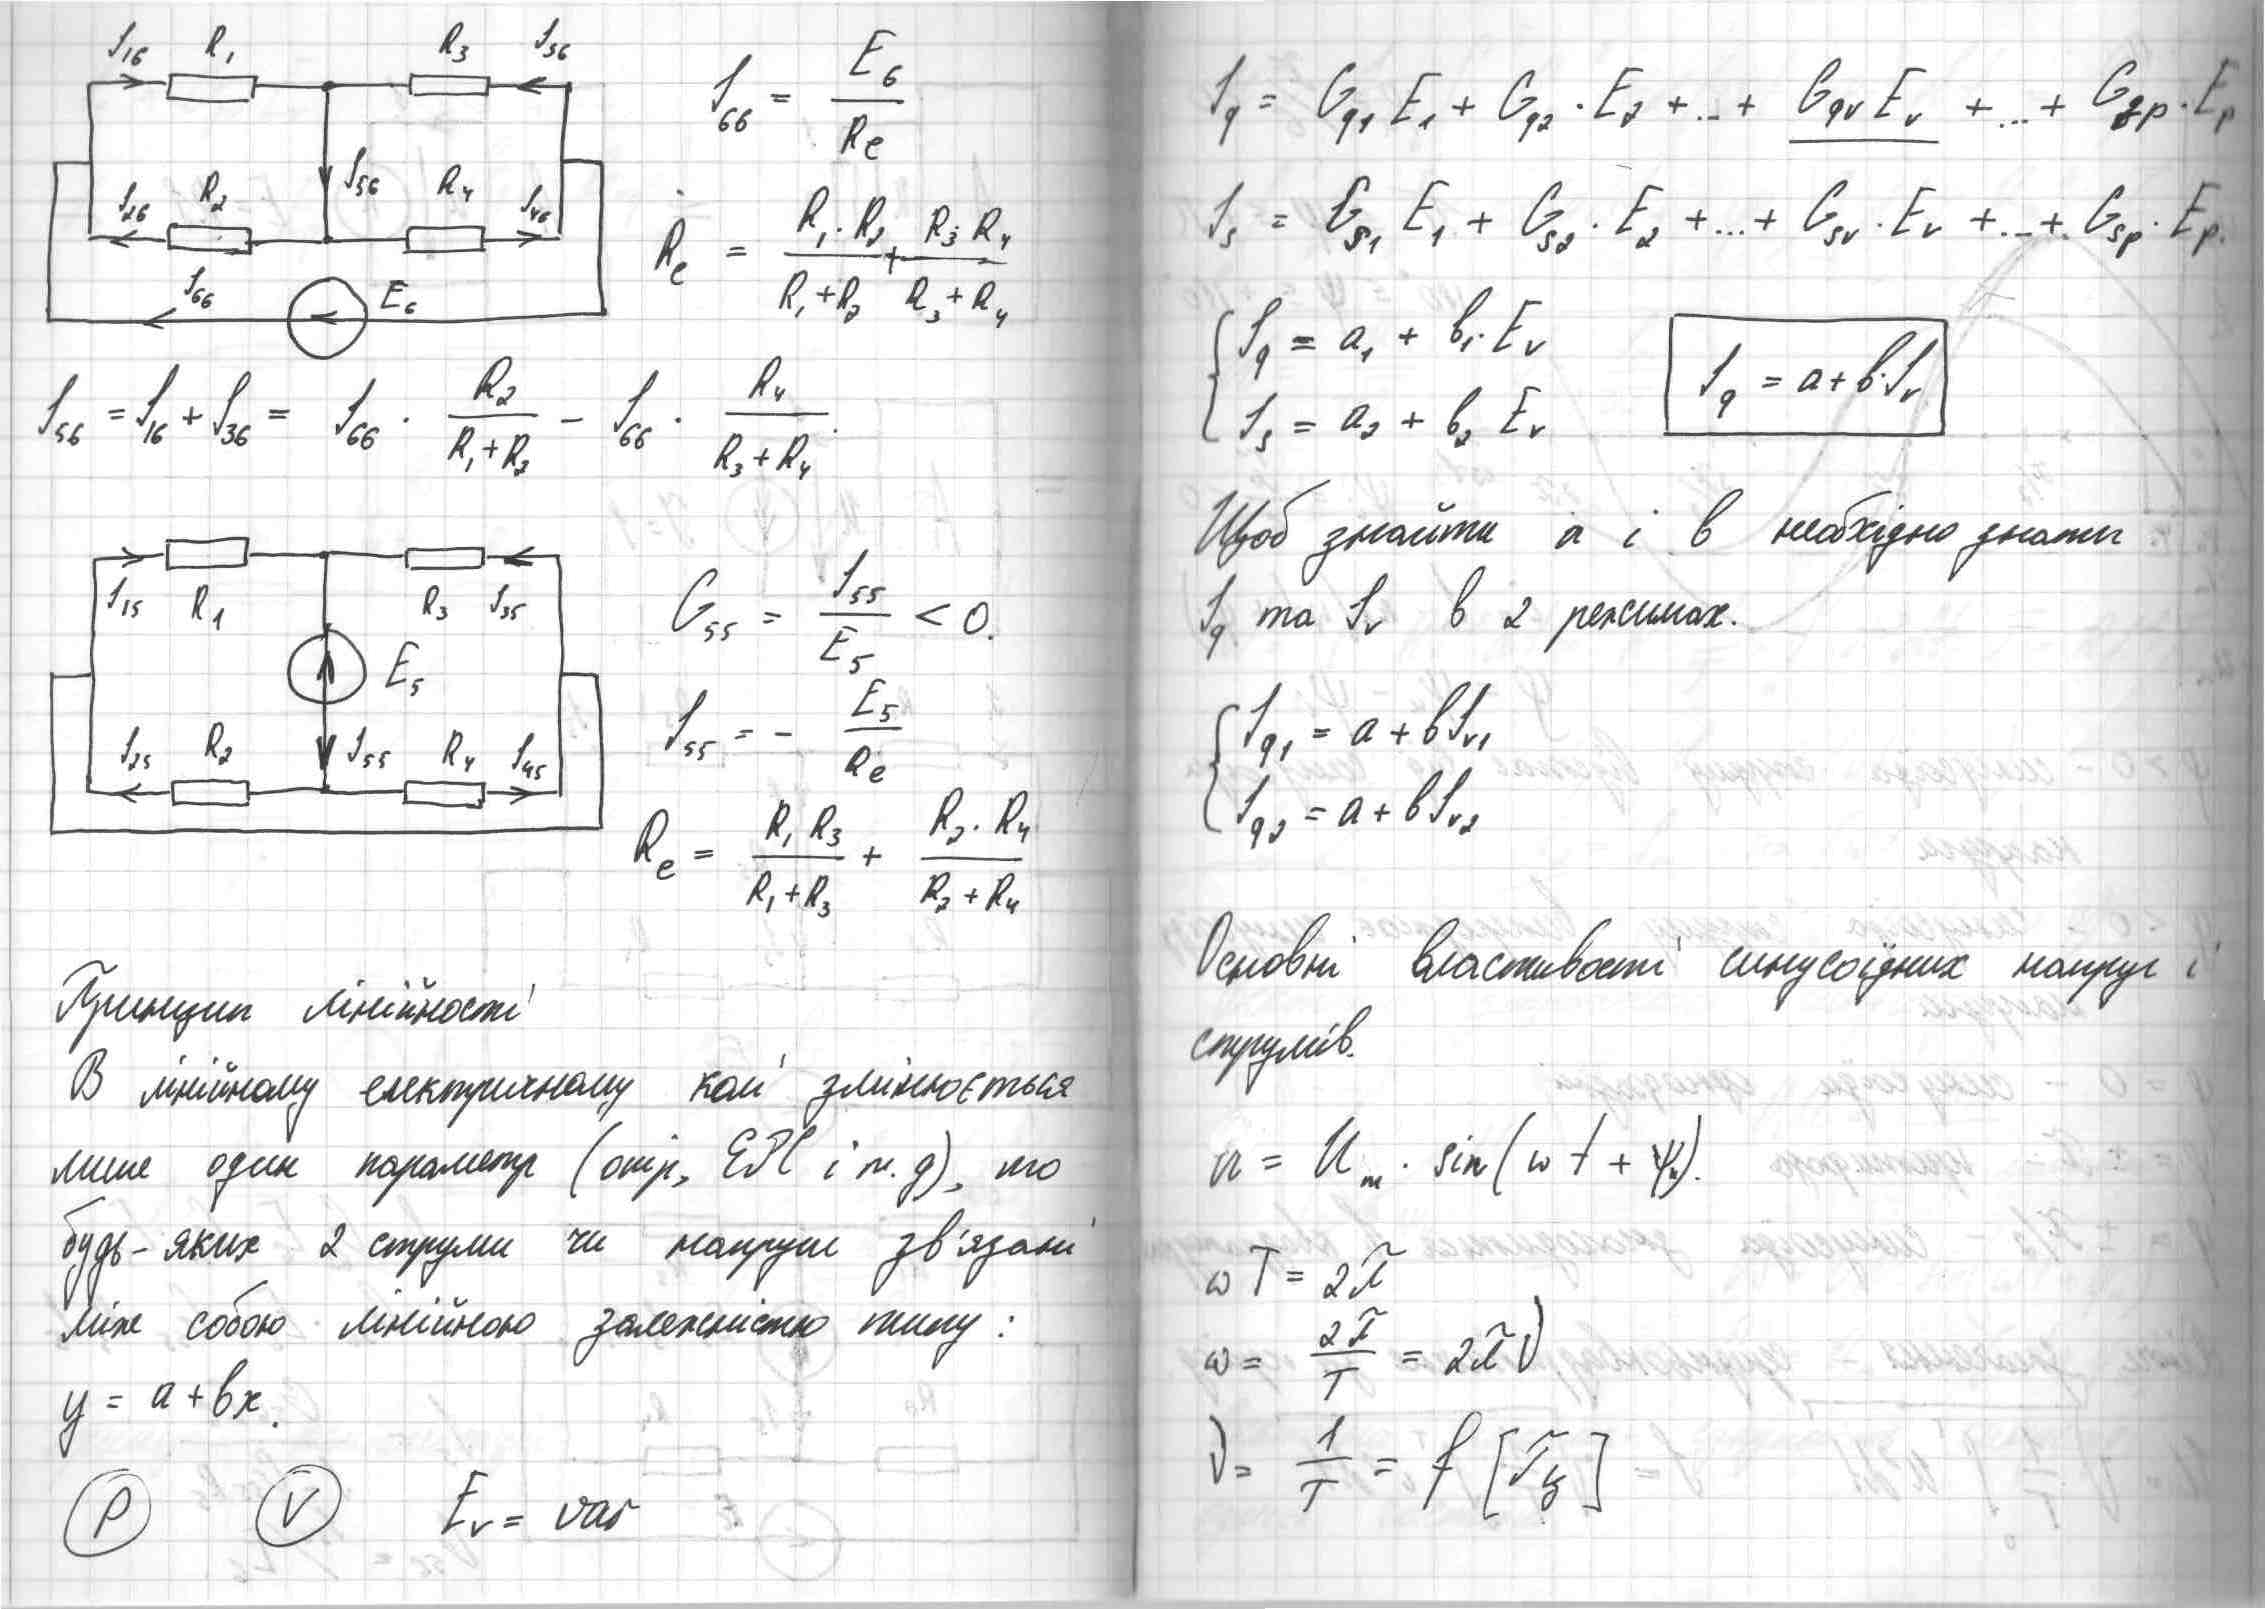 I₁₆ R₁ R₃ I₃₆
I₂₆ R₂ I₅₆ R₄ I₄₆
I₆₆ E₆
I₆₆ = E₆ / Rₑ
Rₑ = R₁·R₂ / (R₁+R₂) + R₃·R₄ / (R₃+R₄)
I₅₆ = I₁₆ + I₃₆ = I₆₆ · R₂ / (R₁+R₂) − I₆₆ · R₄ / (R₃+R₄).
I₁₅ R₁ R₃ I₃₅
E₅
I₂₅ R₂ I₅₅ R₄ I₄₅
G₅₅ = I₅₅ / E₅ < 0.
I₅₅ = − E₅ / Rₑ
Rₑ = R₁ R₃ / (R₁+R₃) + R₂·R₄ / (R₂+R₄)
Принцип лінійності
В лінійному електричному колі змінюється
лише один параметр (опір, ЕРС і т.д), то
будь-яких 2 струми чи напруги зв'язані
між собою лінійною залежністю типу:
y = a + bx.
P V Eᵥ = var
I_q = G_q1 E₁ + G_q2 · E₂ + ... + G_qv E_v + ... + G_qp · E_p
I_s = G_s1 E₁ + G_s2 · E₂ + ... + G_sv · E_v + ... + G_sp · E_p.
I_q = a₁ + b₁ · E_v
I_s = a₂ + b₂ E_v
I_q = a + b · I_v
Щоб знайти a і b необхідно знати
I_q та I_v в 2 режимах.
I_q1 = a + b I_v1
I_q2 = a + b I_v2
Основні властивості синусоїдних напруг і
струмів.
u = Uₘ · sin(ωt + ψᵤ).
ωT = 2π
ω = 2π / T = 2πν
ν = 1 / T = f [Гц]